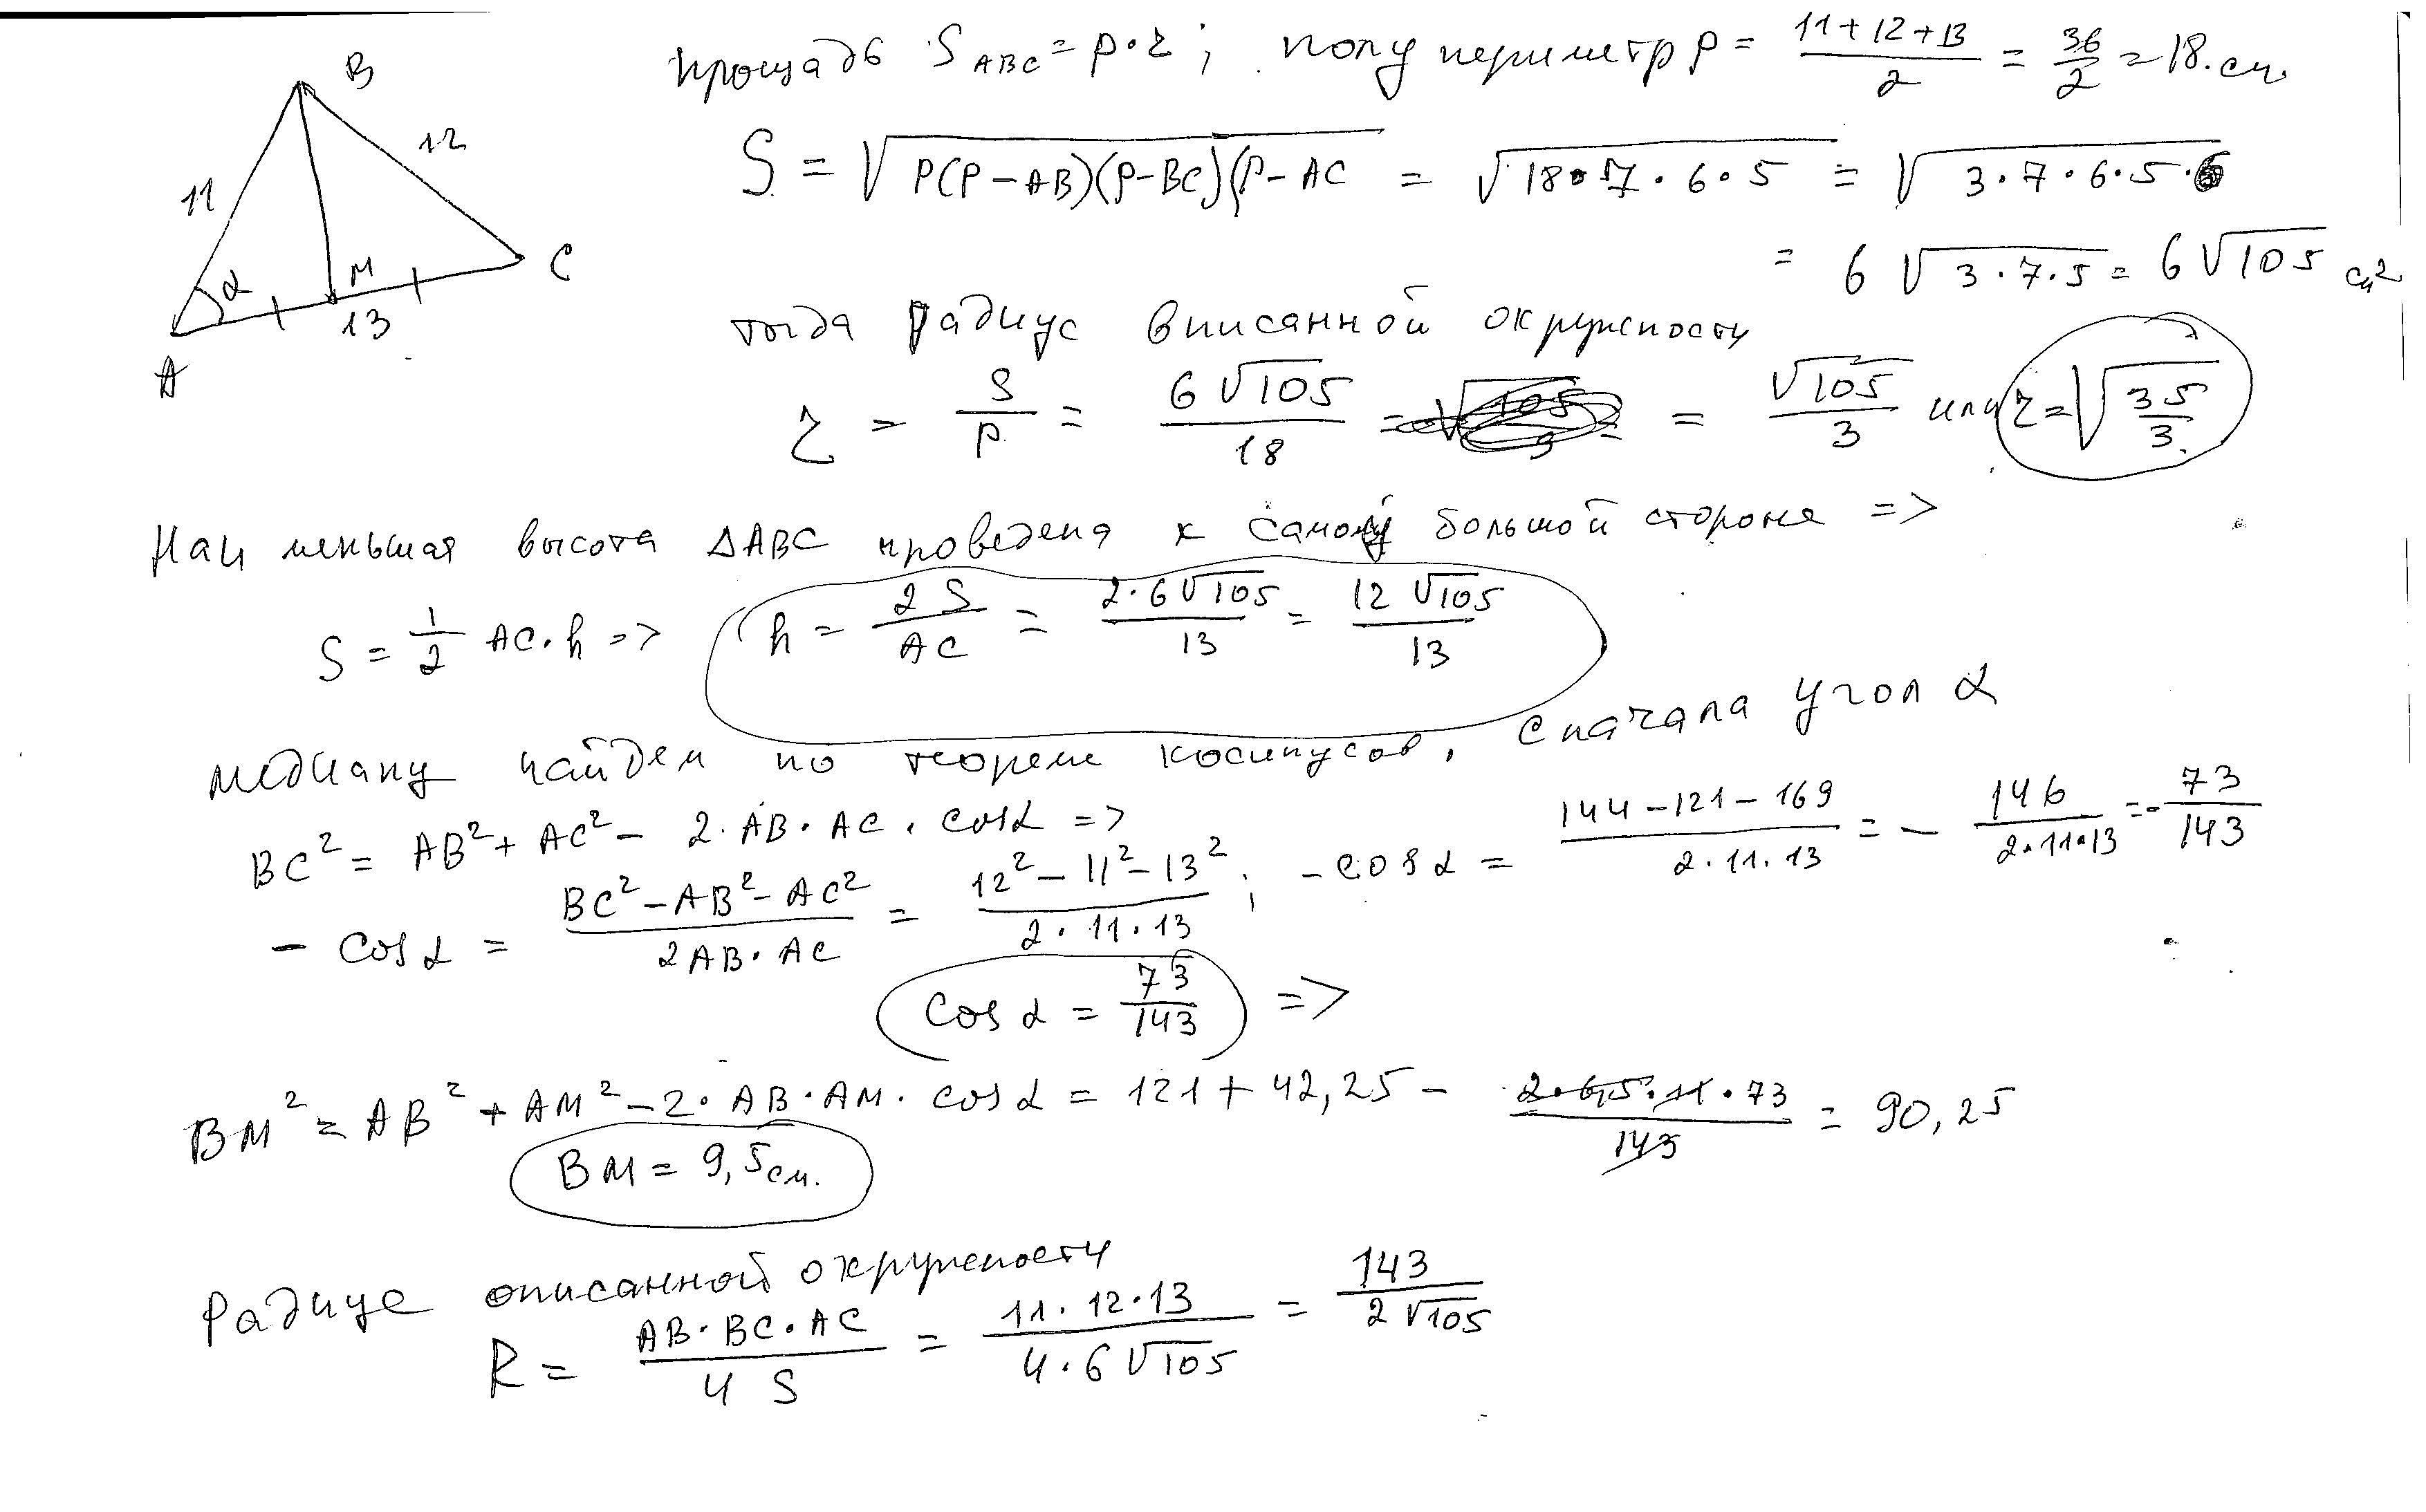 B
12
11
α
M
C
13
A
площадь S_ABC = p·r; полупериметр p = (11+12+13)/2 = 36/2 = 18.см
S = √(P(P-AB)(P-BC)(P-AC = √(18·7·6·5) = √(3·7·6·5·6)
= 6√(3·7·5) = 6√105 см²
тогда радиус вписанной окружности
r = S/P = 6√105/18 = = √105/3 или r = √(35/3)
Наименьшая высота ΔABC проведена к самой большой стороне =>
S = 1/2 AC·h => h = 2S/AC = 2·6√105/13 = 12√105/13
медиану найдем по теореме косинусов, сначала угол α
BC² = AB² + AC² - 2·AB·AC·cosα =>
-cosα = (BC²-AB²-AC²)/(2AB·AC) = (12²-11²-13²)/(2·11·13); -cosα = (144-121-169)/(2·11·13) = -146/(2·11·13) = -73/143
cosα = 73/143 =>
BM² = AB² + AM² - 2·AB·AM·cosα = 121 + 42,25 - (2·6,5·11·73)/143 = 90,25
BM = 9,5см.
Радиус описанной окружности
R = AB·BC·AC/4S = 11·12·13/(4·6√105) = 143/(2√105)